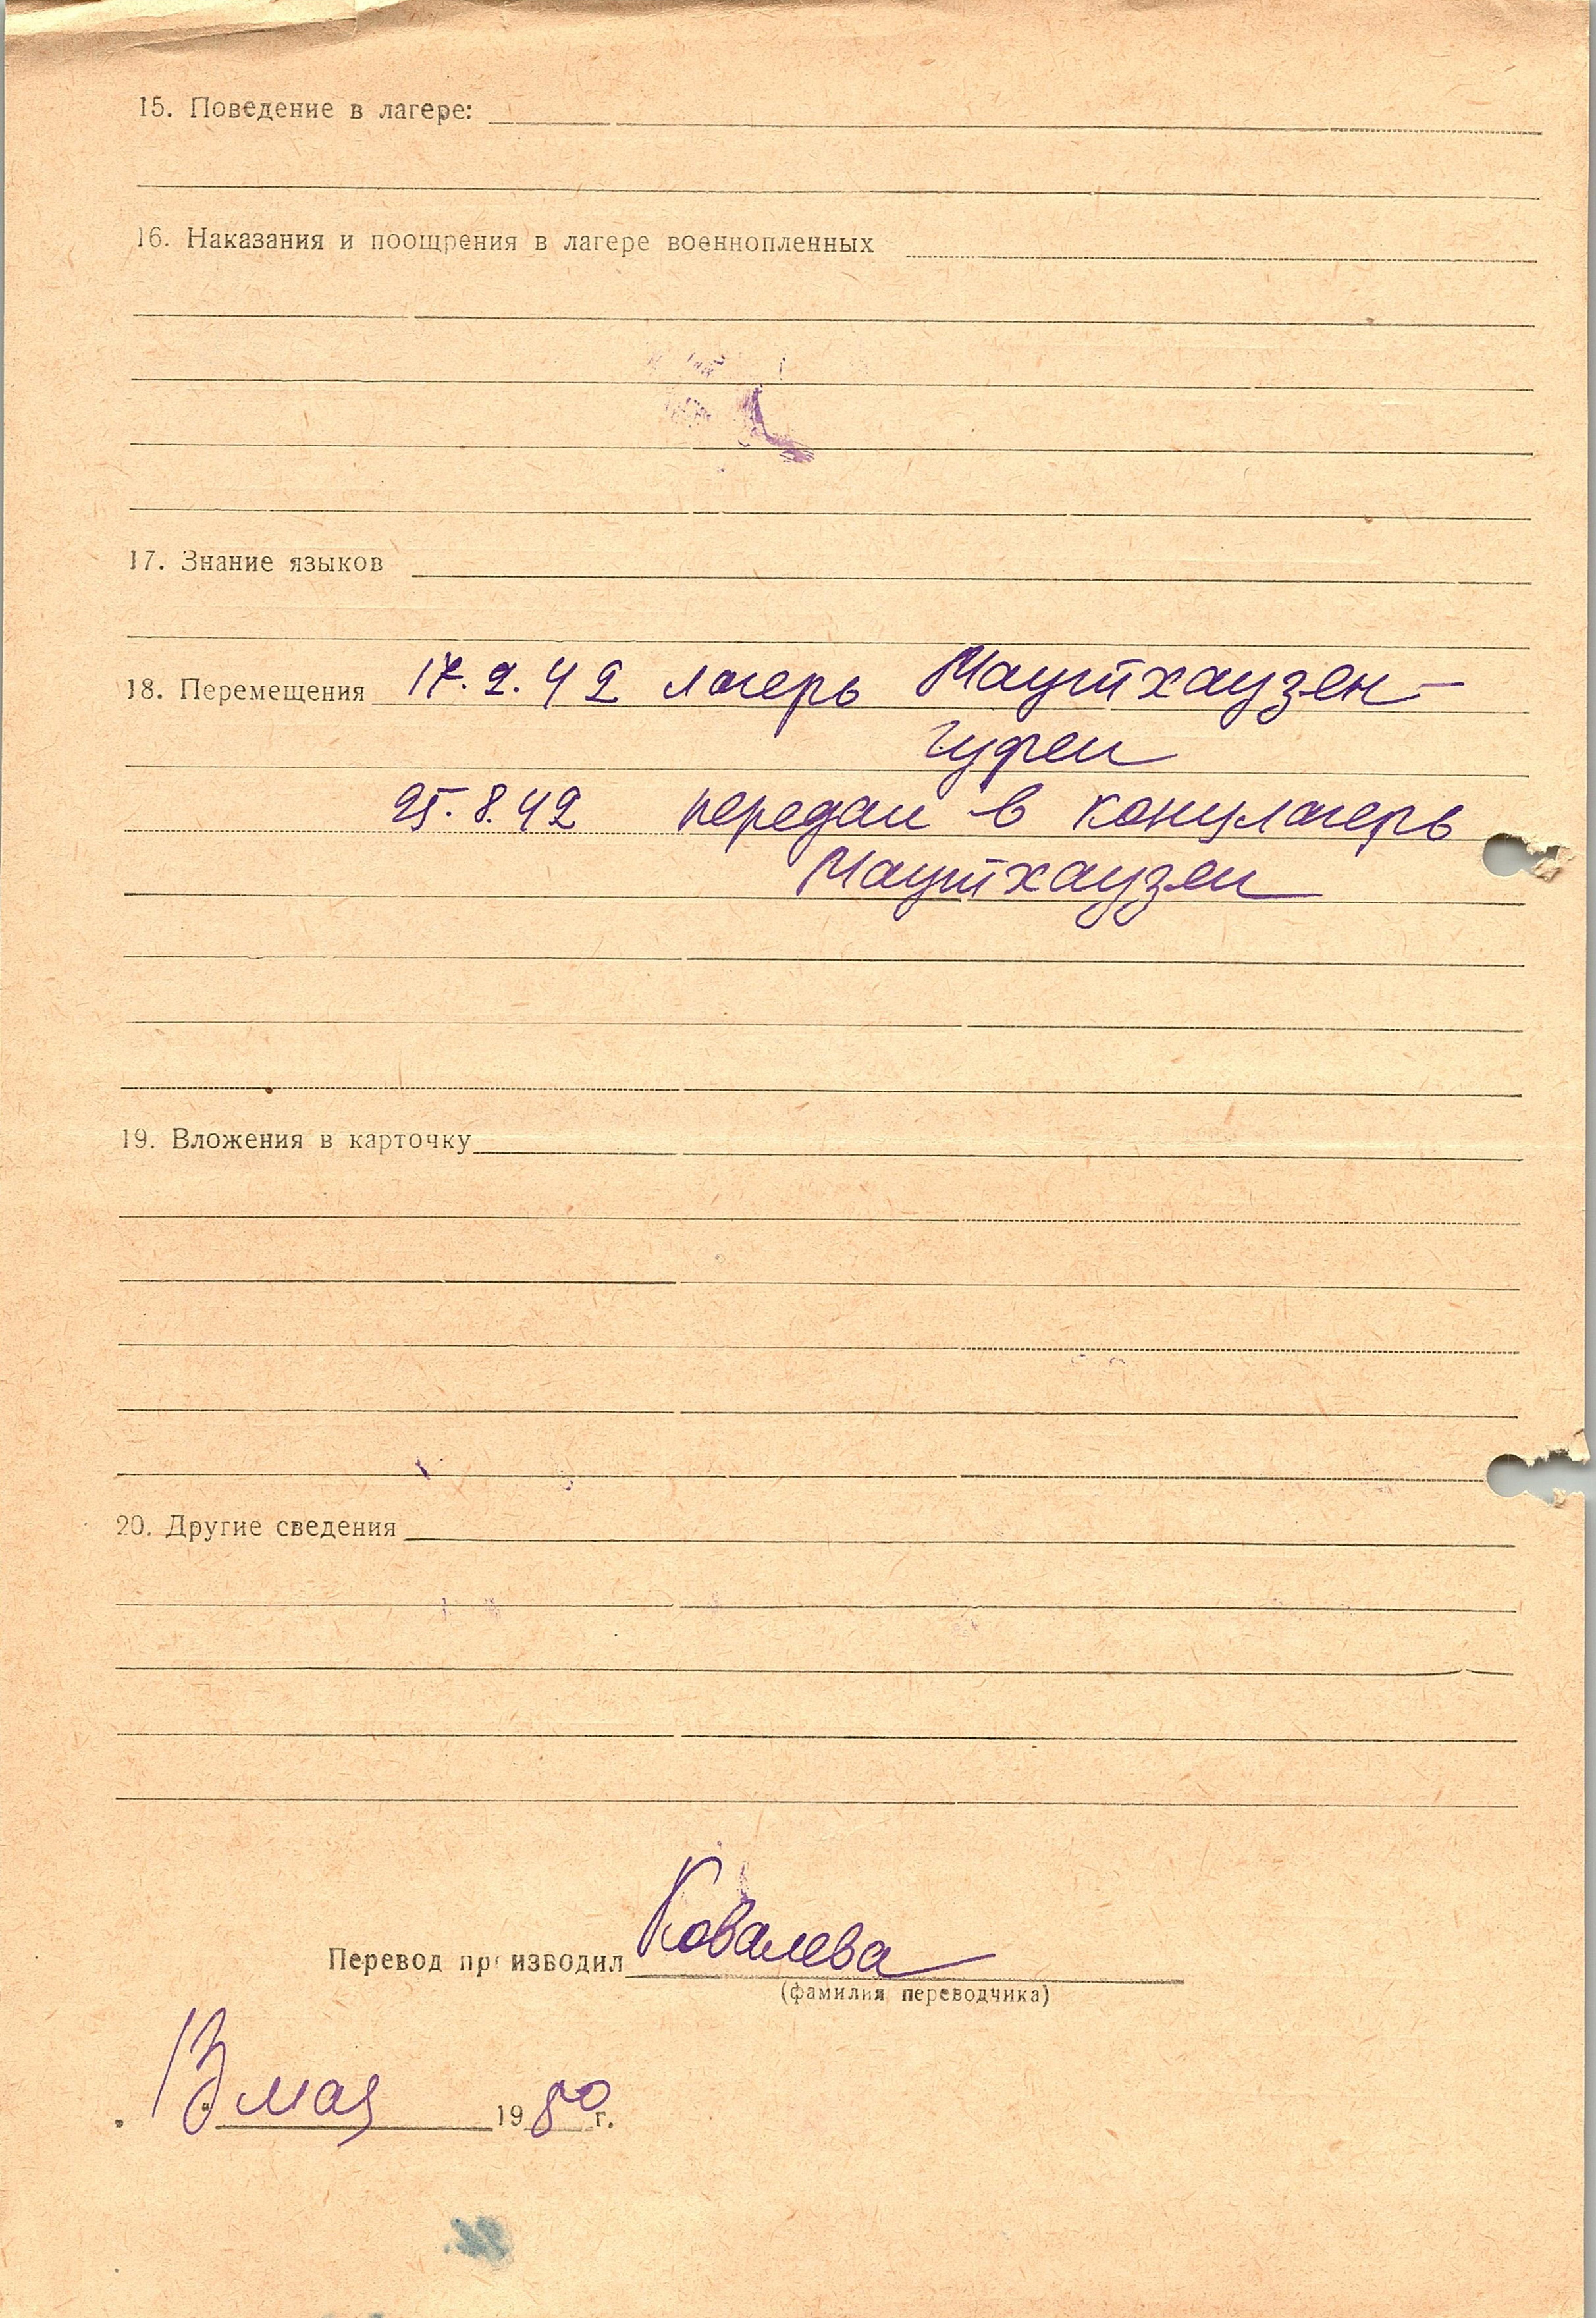 15. Поведение в лагере:
16. Наказания и поощрения в лагере военнопленных
17. Знание языков
18. Перемещения 17.2.42 лагерь Маутхаузен-
Гузен
25.8.42 передан в концлагерь
Маутхаузен
19. Вложения в карточку
20. Другие сведения
Перевод производил Ковалева
(фамилия переводчика)
"13" мая 1980 г.